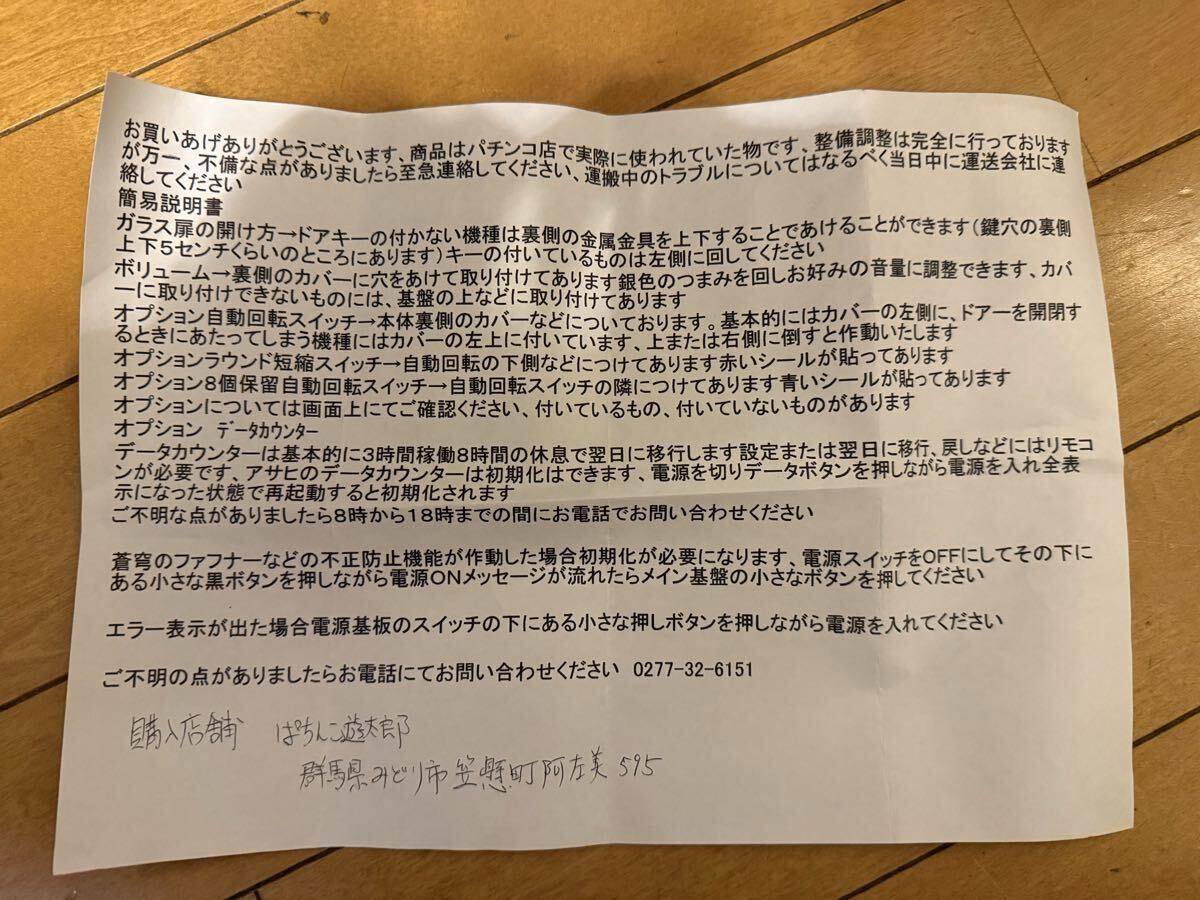 お買いあげありがとうございます、商品はパチンコ店で実際に使われていた物です、整備調整は完全に行っております
が万一、不備な点がありましたら至急連絡してください、運搬中のトラブルについてはなるべく当日中に運送会社に連
絡してください
簡易説明書
ガラス扉の開け方→ドアキーの付かない機種は裏側の金属金具を上下することであけることができます（鍵穴の裏側
上下５センチくらいのところにあります）キーの付いているものは左側に回してください
ボリューム→裏側のカバーに穴をあけて取り付けてあります銀色のつまみを回しお好みの音量に調整できます、カバ
ーに取り付けできないものには、基盤の上などに取り付けてあります
オプション自動回転スイッチ→本体裏側のカバーなどについております。基本的にはカバーの左側に、ドアーを開閉す
るときにあたってしまう機種にはカバーの左上に付いています、上または右側に倒すと作動いたします
オプションラウンド短縮スイッチ→自動回転の下側などにつけてあります赤いシールが貼ってあります
オプション８個保留自動回転スイッチ→自動回転スイッチの隣につけてあります青いシールが貼ってあります
オプションについては画面上にてご確認ください、付いているもの、付いていないものがあります
オプション ﾃﾞｰﾀｶｳﾝﾀｰ
データカウンターは基本的に３時間稼働８時間の休息で翌日に移行します設定または翌日に移行、戻しなどにはリモコ
ンが必要です、アサヒのデータカウンターは初期化はできます、電源を切りデータボタンを押しながら電源を入れ全表
示になった状態で再起動すると初期化されます
ご不明な点がありましたら８時から１８時までの間にお電話でお問い合わせください
蒼穹のファフナーなどの不正防止機能が作動した場合初期化が必要になります、電源スイッチをＯＦＦにしてその下に
ある小さな黒ボタンを押しながら電源ＯＮメッセージが流れたらメイン基盤の小さなボタンを押してください
エラー表示が出た場合電源基板のスイッチの下にある小さな押しボタンを押しながら電源を入れてください
ご不明の点がありましたらお電話にてお問い合わせください 0277-32-6151
購入店舗 ぱちんこ遊太郎
群馬県みどり市笠懸町阿左美 595